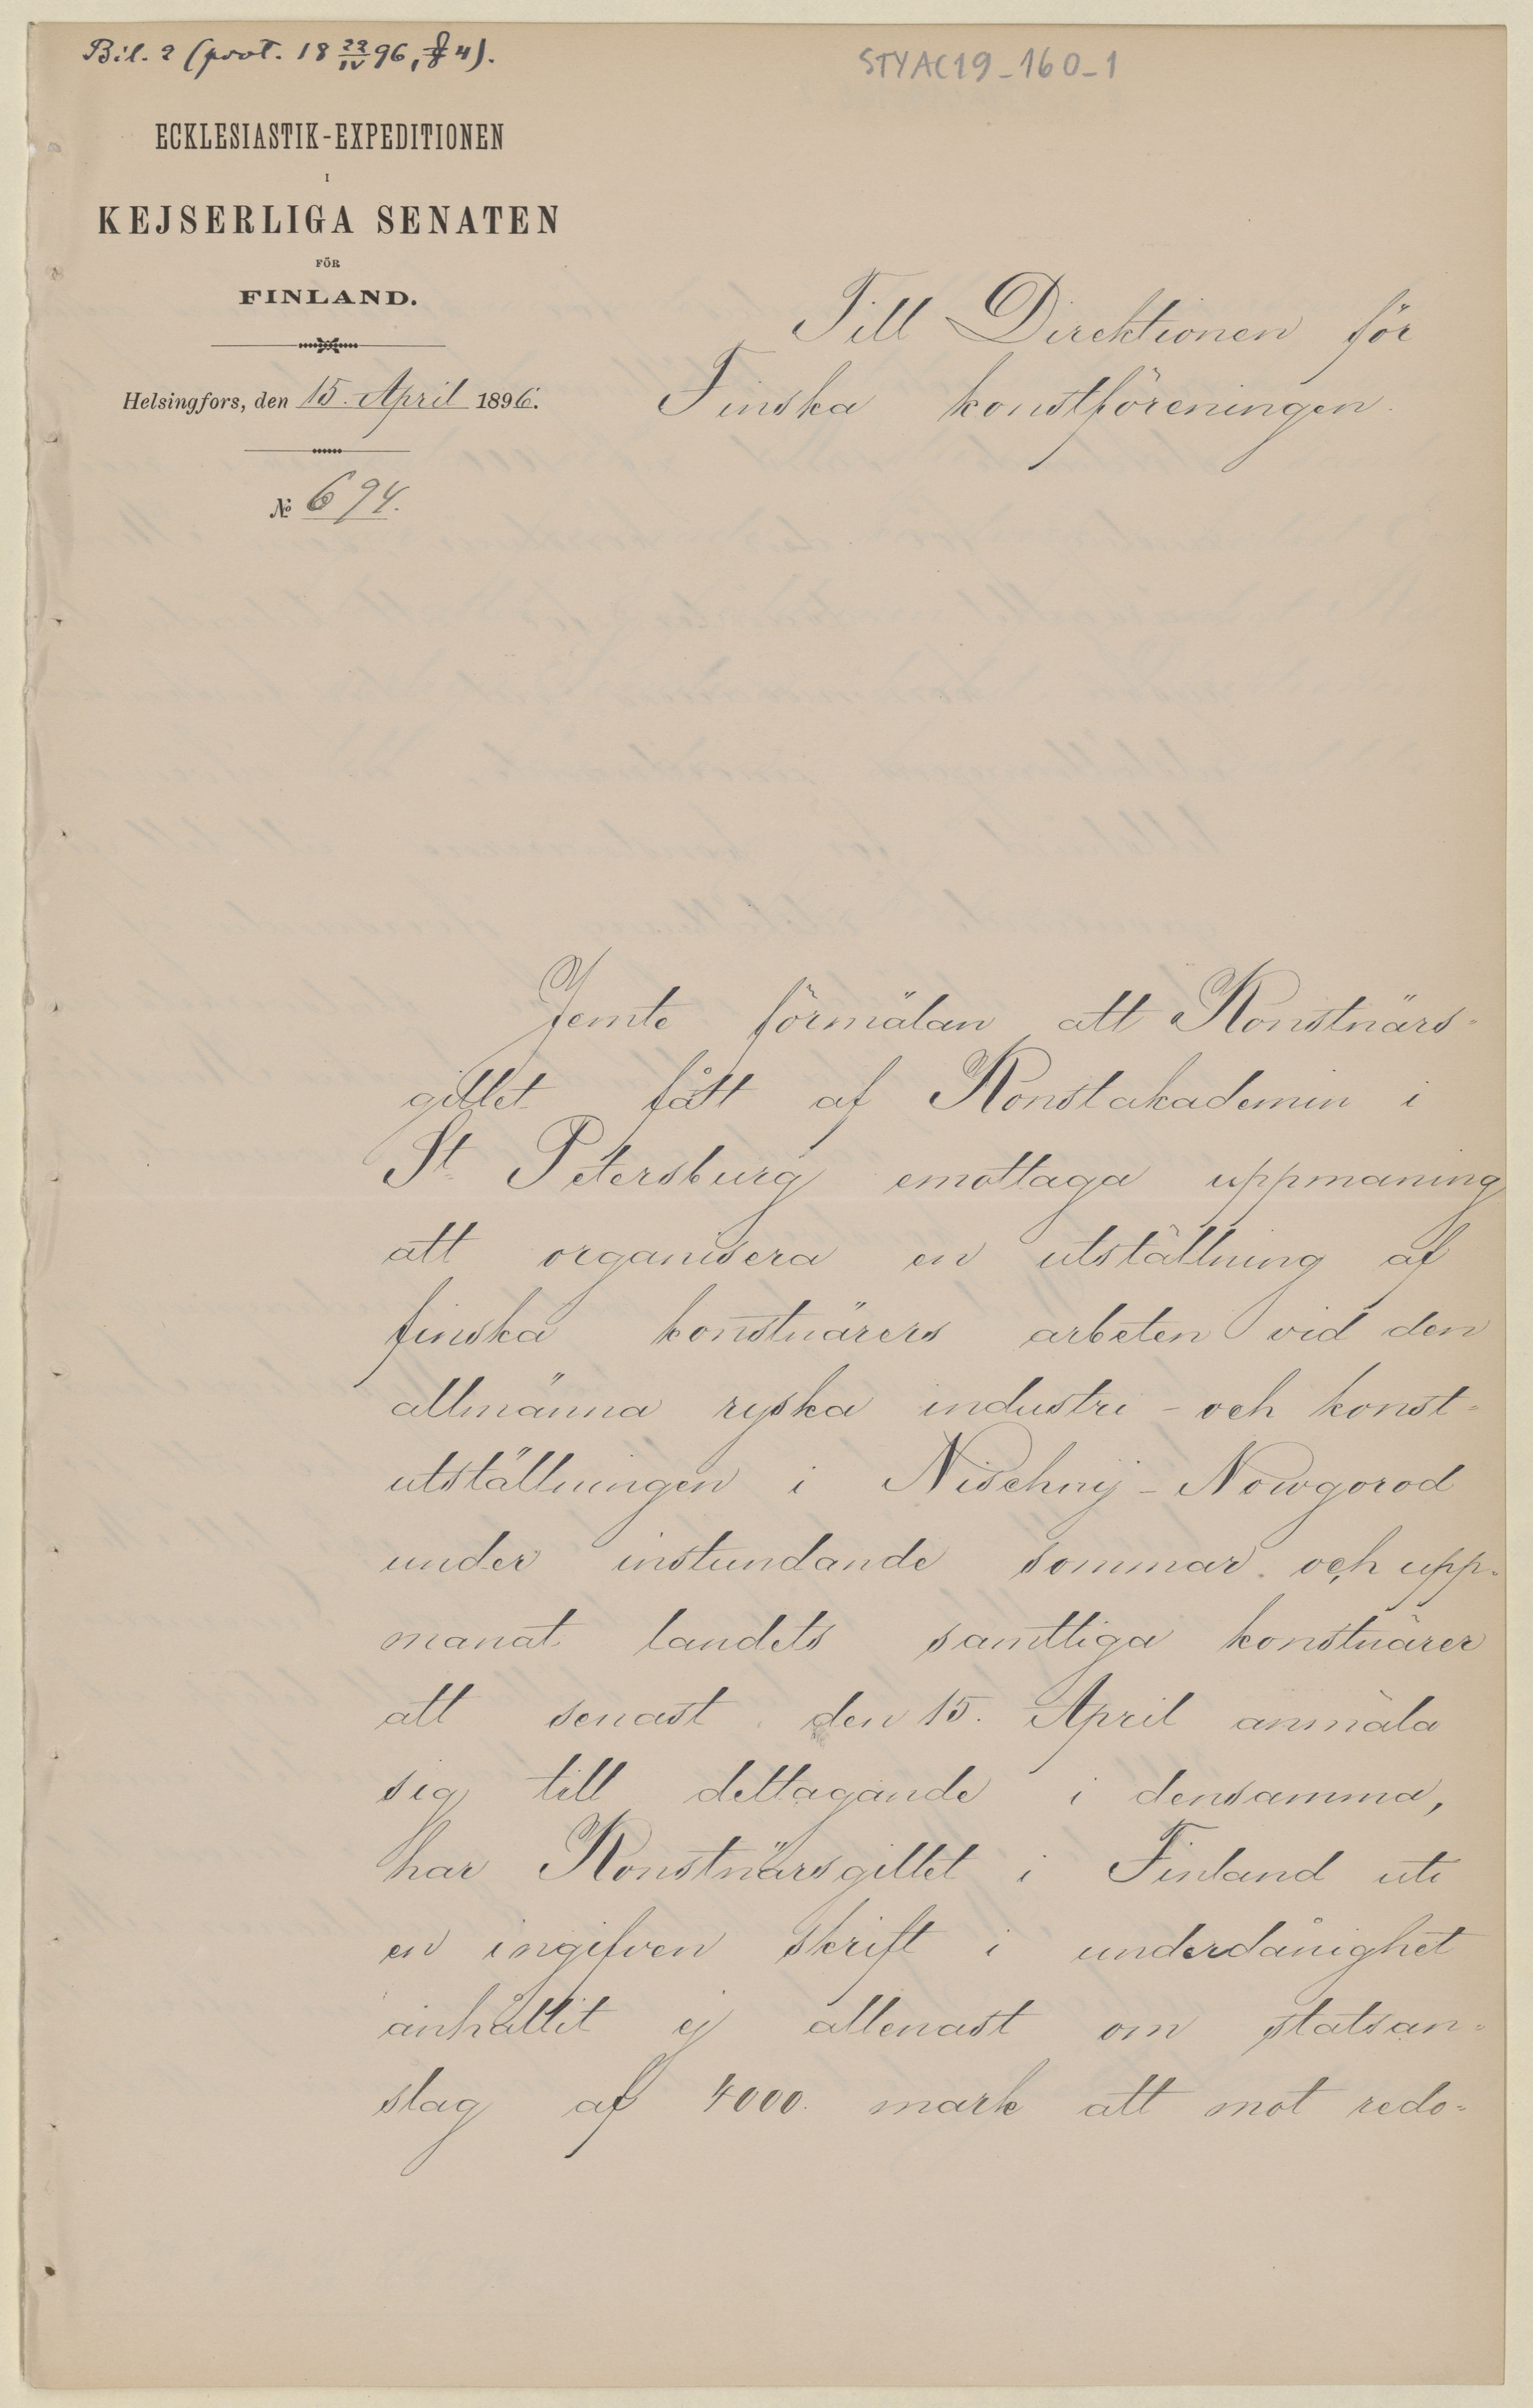 Bil. 2 (prot. 18 22/IV 96, § 4).
STYAC19_160_1
ECKLESIASTIK-EXPEDITIONEN
I
KEJSERLIGA SENATEN
FÖR
FINLAND.
Helsingfors, den 15. April 1896.
№ 694.
Till Direktionen för
Finska konstföreningen.
Jemte förmälan att Konstnärs-
gillet fått af Konstakademin i
St. Petersburg emottaga uppmaning
att organisera en utställning af
finska konstnärers arbeten vid den
allmänna ryska industri- och konst-
utställningen i Nischnij-Nowgorod
under instundande sommar och upp-
manat landets samtliga konstnärer
att senast den 15. April anmäla
sig till deltagande i densamma,
har Konstnärsgillet i Finland uti
en ingifven skrift i underdånighet
anhållit ej allenast om statsan-
slag af 4000 mark att mot redo-